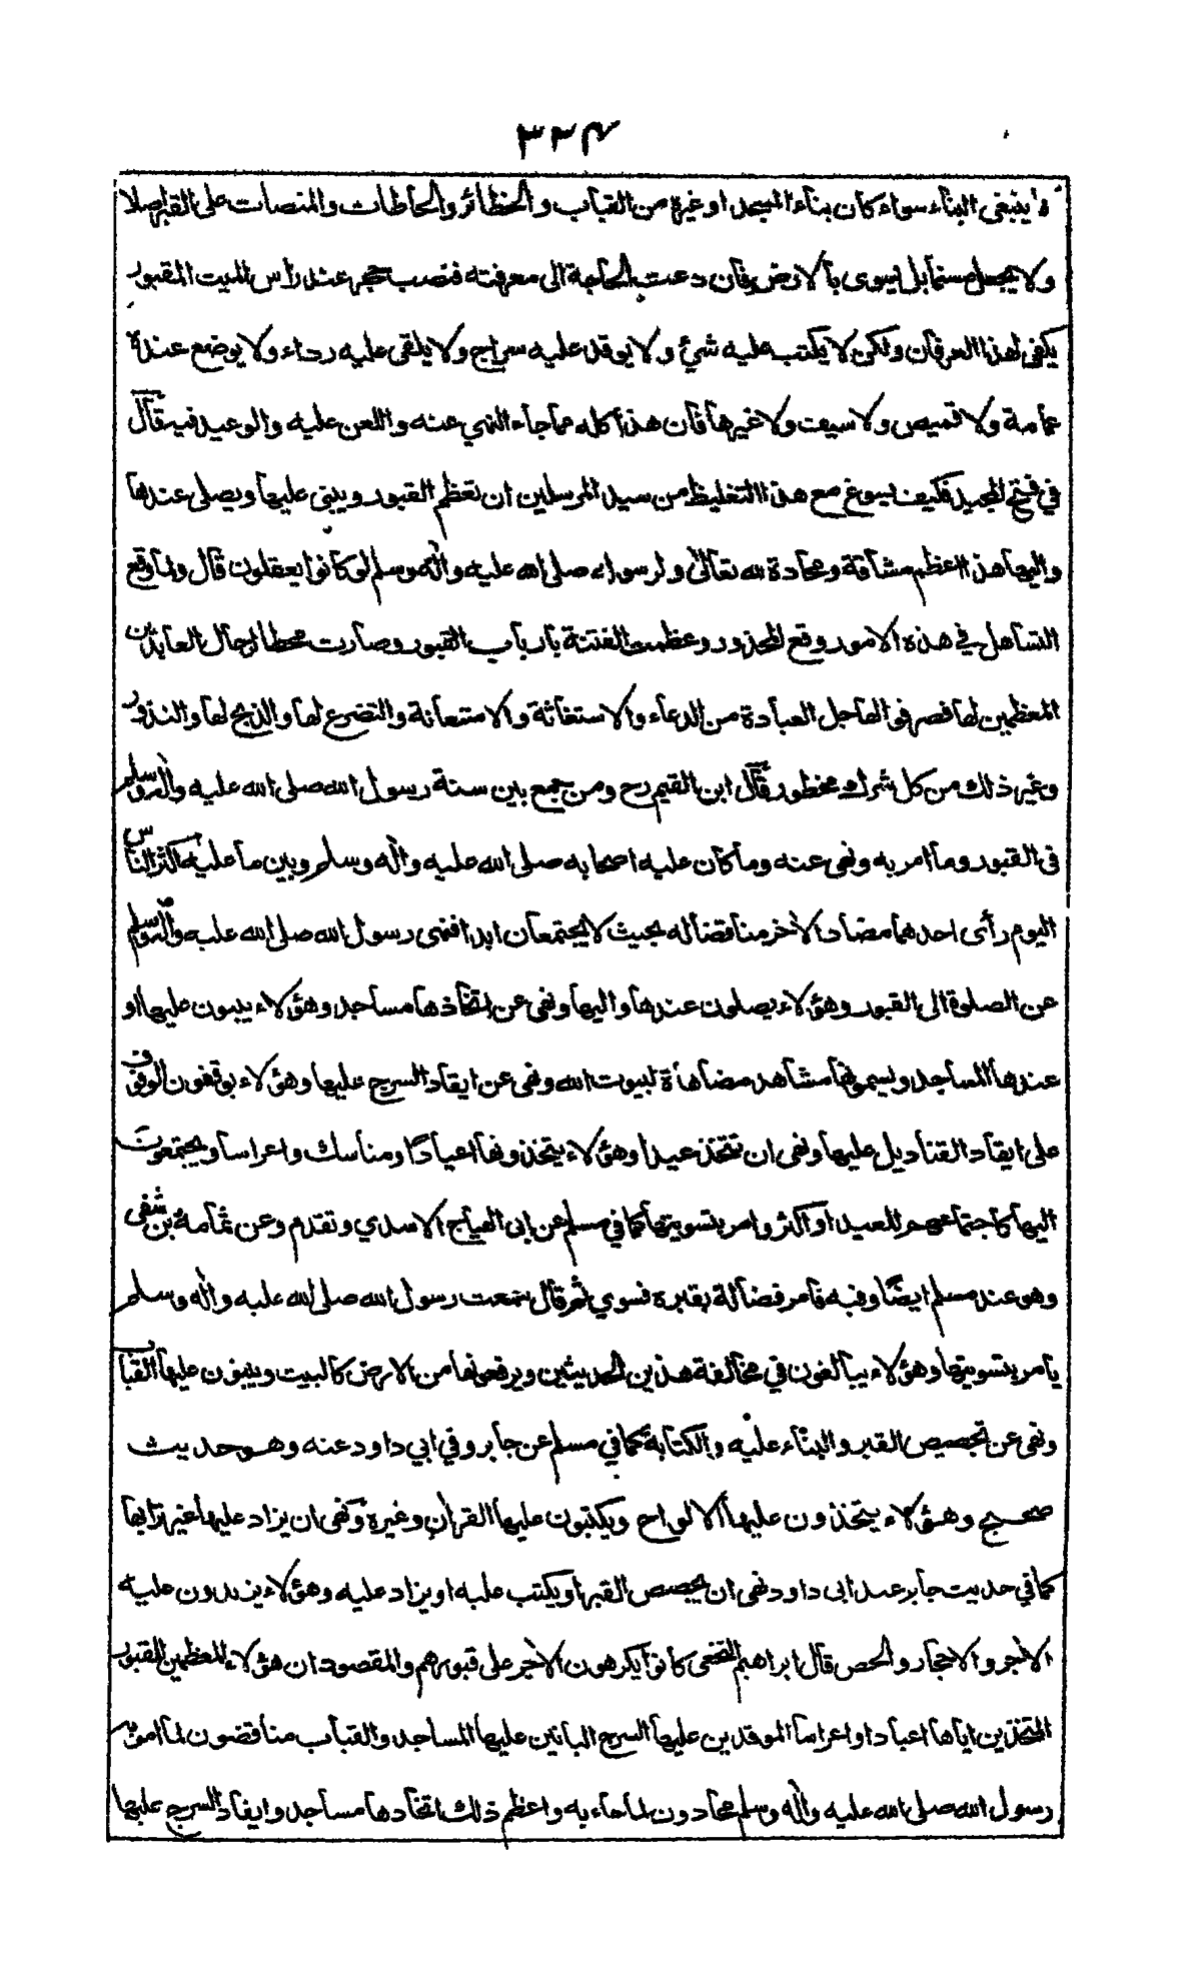 ٣٢٤
لا ينبغي البناء سواء كان بناء المسجد او غيره من القباب والحظائر والحاطات والمنصات على القبر اصلا
ولا يجعل مسنما بل يسوى بالارض فان دعت الحاجة الى معرفته فنصب حجر عند راس الميت المقبور
يكفي لهذا العرفان ولكن لا يكتب عليه شئ ولا يوقد عليه سراج ولا يلقى عليه رداء ولا يوضع عنده
عمامة ولا قميص ولا سيف ولا غيرها فان هذا كله مما جاء النهي عنه واللعن عليه والوعيد فيه قال
في فتح المجيد فكيف يسوغ مع هذا التغليظ من سيد المرسلين ان تعظم القبور ويبنى عليها ويصلى عندها
واليها هذا اعظم مشاقة ومحادة لله تعالى ولرسوله صلى الله عليه واله وسلم لو كانوا يعقلون قال ولما وقع
التساهل في هذه الامور وقع المحذور وعظمت الفتنة بارباب القبور وصارت محطا لرحال العابدين
المعظمين لها فصرفوا لها جل العبادة من الدعاء والاستغاثة والاستعانة والتضرع لها والذبح لها والنذور
وغير ذلك من كل شرك محظور قال ابن القيم رح ومن جمع بين سنة رسول الله صلى الله عليه واله وسلم
في القبور وما امر به ونهى عنه وما كان عليه اصحابه صلى الله عليه واله وسلم وبين ما عليه اكثر الناس
اليوم رأى احدهما مضادا للاخر مناقضا له بحيث لا يجتمعان ابدا فنهى رسول الله صلى الله عليه واله وسلم
عن الصلوة الى القبور وهؤلاء يصلون عندها واليها ونهى عن اتخاذها مساجد وهؤلاء يبنون عليها او
عندها المساجد ويسمونها مشاهد مضاهاة لبيوت الله ونهى عن ايقاد السرج عليها وهؤلاء يوقفون الوقوف
على ايقاد القناديل عليها ونهى ان تتخذ عيدا وهؤلاء يتخذونها اعيادًا ومناسك واعراسا ويجتمعون
اليها كاجتماعهم للعيد او اكثر وامر بتسويتها كما في مسلم عن ابي الهياج الاسدي وتقدم وعن ثمامة بن شفى
وهو عند مسلم ايضًا وفيه فامر فضالة بقبره فسوي ثم قال سمعت رسول الله صلى الله عليه واله وسلم
يامر بتسويتها وهؤلاء يبالغون في مخالفة هذين الحديثين ويرفعونها من الارض كالبيت ويبنون عليها القباب
ونهى عن تجصيص القبر والبناء عليه والكتابة كما في مسلم عن جابر وفي ابي داود عنه وهو حديث
صحيح وهؤلاء يتخذون عليها الالواح ويكتبون عليها القران وغيره ونهى ان يزاد عليها غير ترابها
كما في حديث جابر عند ابي داود نهى ان يجصص القبر او يكتب عليه او يزاد عليه وهؤلاء يزيدون عليه
الاجر والاحجار والجص قال ابراهيم النخعي كانوا يكرهون الاجر على قبورهم والمقصود ان هؤلاء المعظمين للقبور
المتخذين اياها اعيادا واعراسا الموقدين عليها السرج البانين عليها المساجد والقباب مناقضون لما امر به
رسول الله صلى الله عليه واله وسلم محادون لما جاء به واعظم ذلك اتخادها مساجد وايقاد السرج عليها